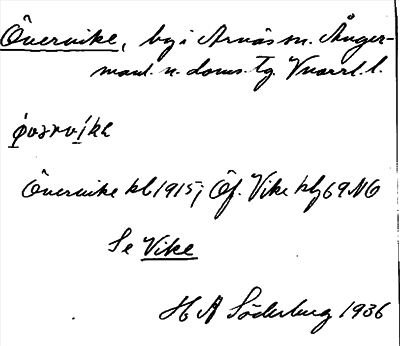 Övervike, by i Arnäs sn. Ånger-
manl. n. doms. tg. Vnorrl. l.
Övervike kb 1915; Öf. Vike kg 69 NO
Se Vike
H A Söderburg 1936